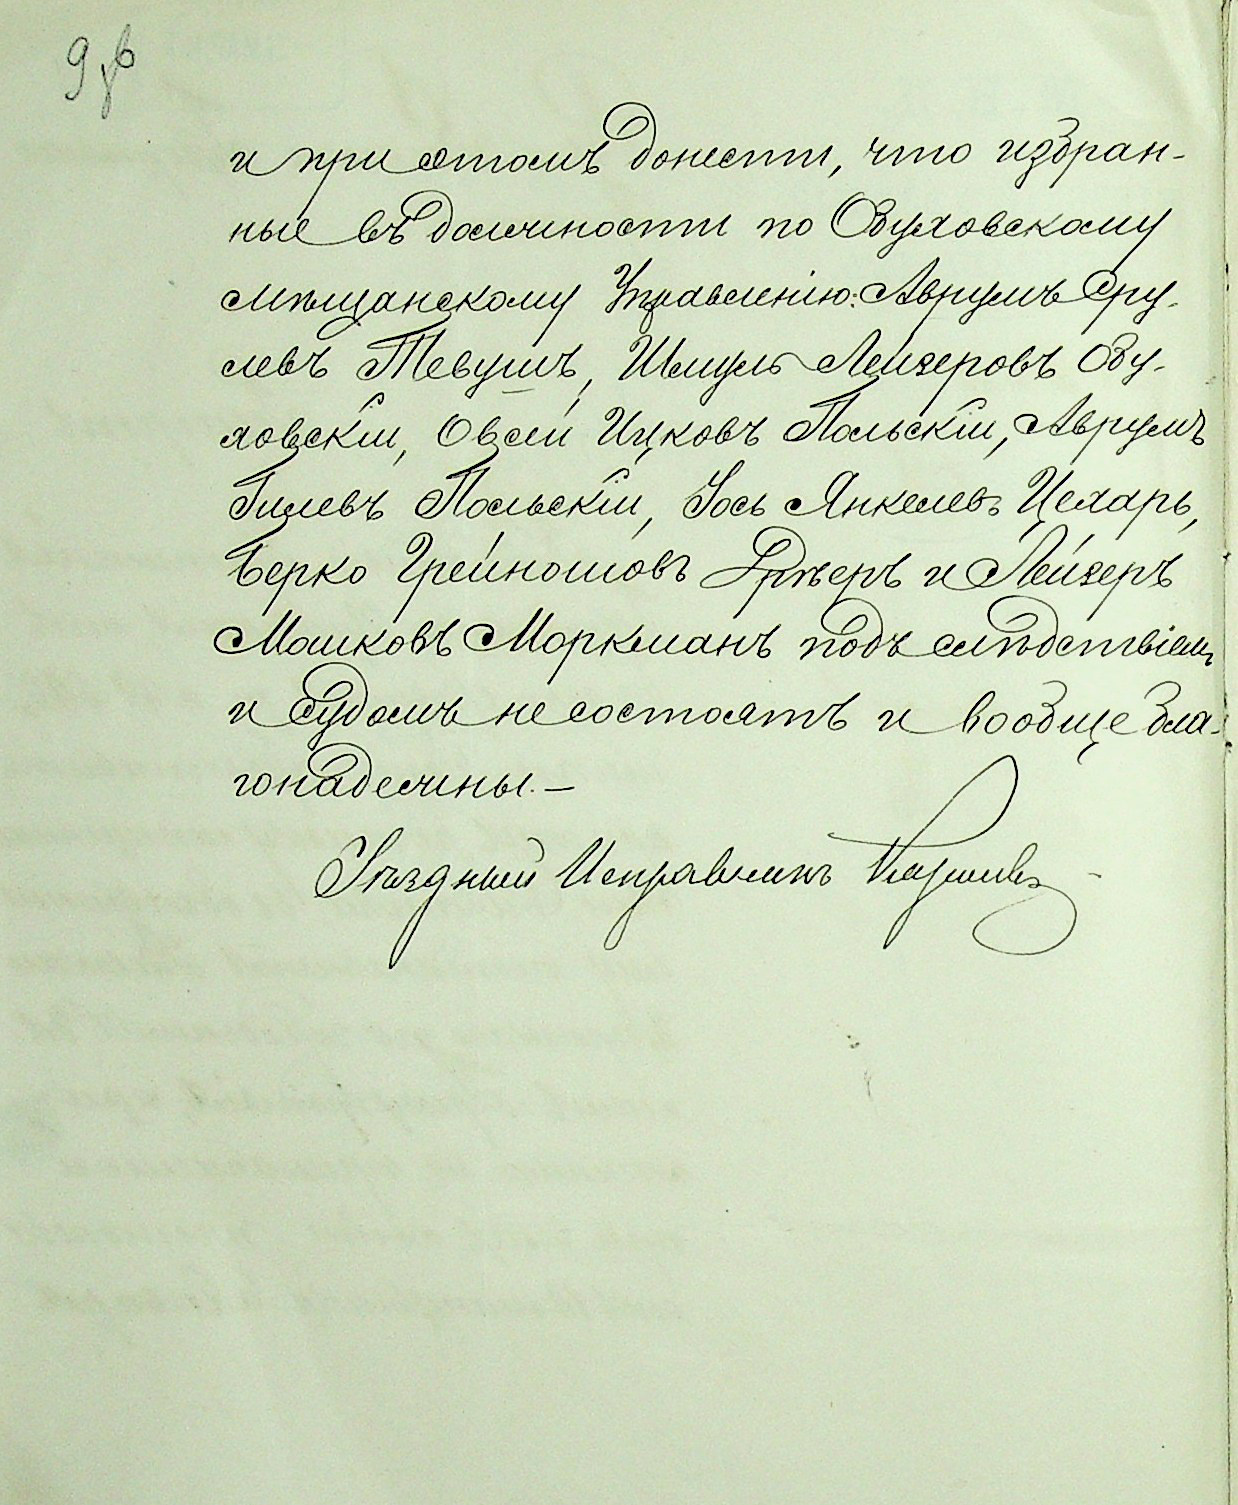 и при этомъ донести, что избран-
ные въ должности по Обуховскому
мѣщанскому Управленію: Аврумъ Сру-
левъ Тевушъ, Шмуль Лейзеровъ Обу-
ховскій, Овсей Ицковъ Польскій, Аврумъ
Гилевъ Польскій, Іось Янкелевъ Цехаръ,
Берко Грейношовъ и Лейзеръ
Мошковъ Моркманъ подъ слѣдствіемъ
и судомъ не состоятъ и вообще бла-
гонадежны.—
Уѣздный Исправникъ